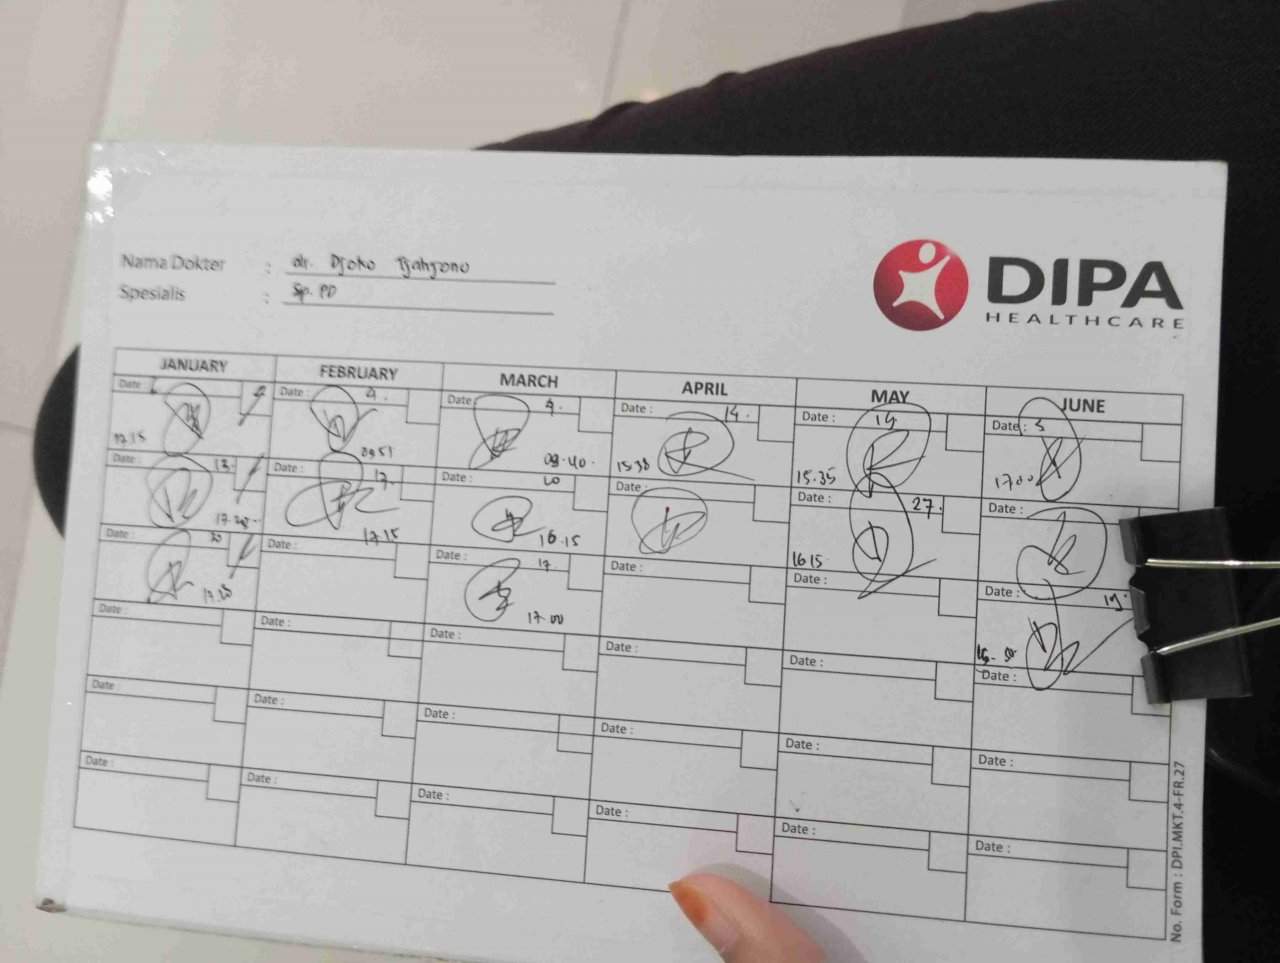 Nama Dokter : dr. Djoko Tjahjono
Spesialis : Sp. PD
DIPA
HEALTHCARE
JANUARY FEBRUARY MARCH APRIL MAY JUNE
Date : Date : 4. Date : 4. Date : 14. Date : 19 Date : 5
17.15 09.51 09.40. 15.38 15.35 17.00
Date : 13. Date : 17. Date : Date : Date : 27. Date :
17.20. 17.15 16.15 16 15
Date : 20 Date : Date : 17. Date : Date : Date : 19.
17.25 17.00
Date : Date : Date : Date : Date : Date :
Date : Date : Date : Date : Date : Date :
Date : Date : Date : Date : Date : Date :
No. Form : DPI.MKT.4-FR.27